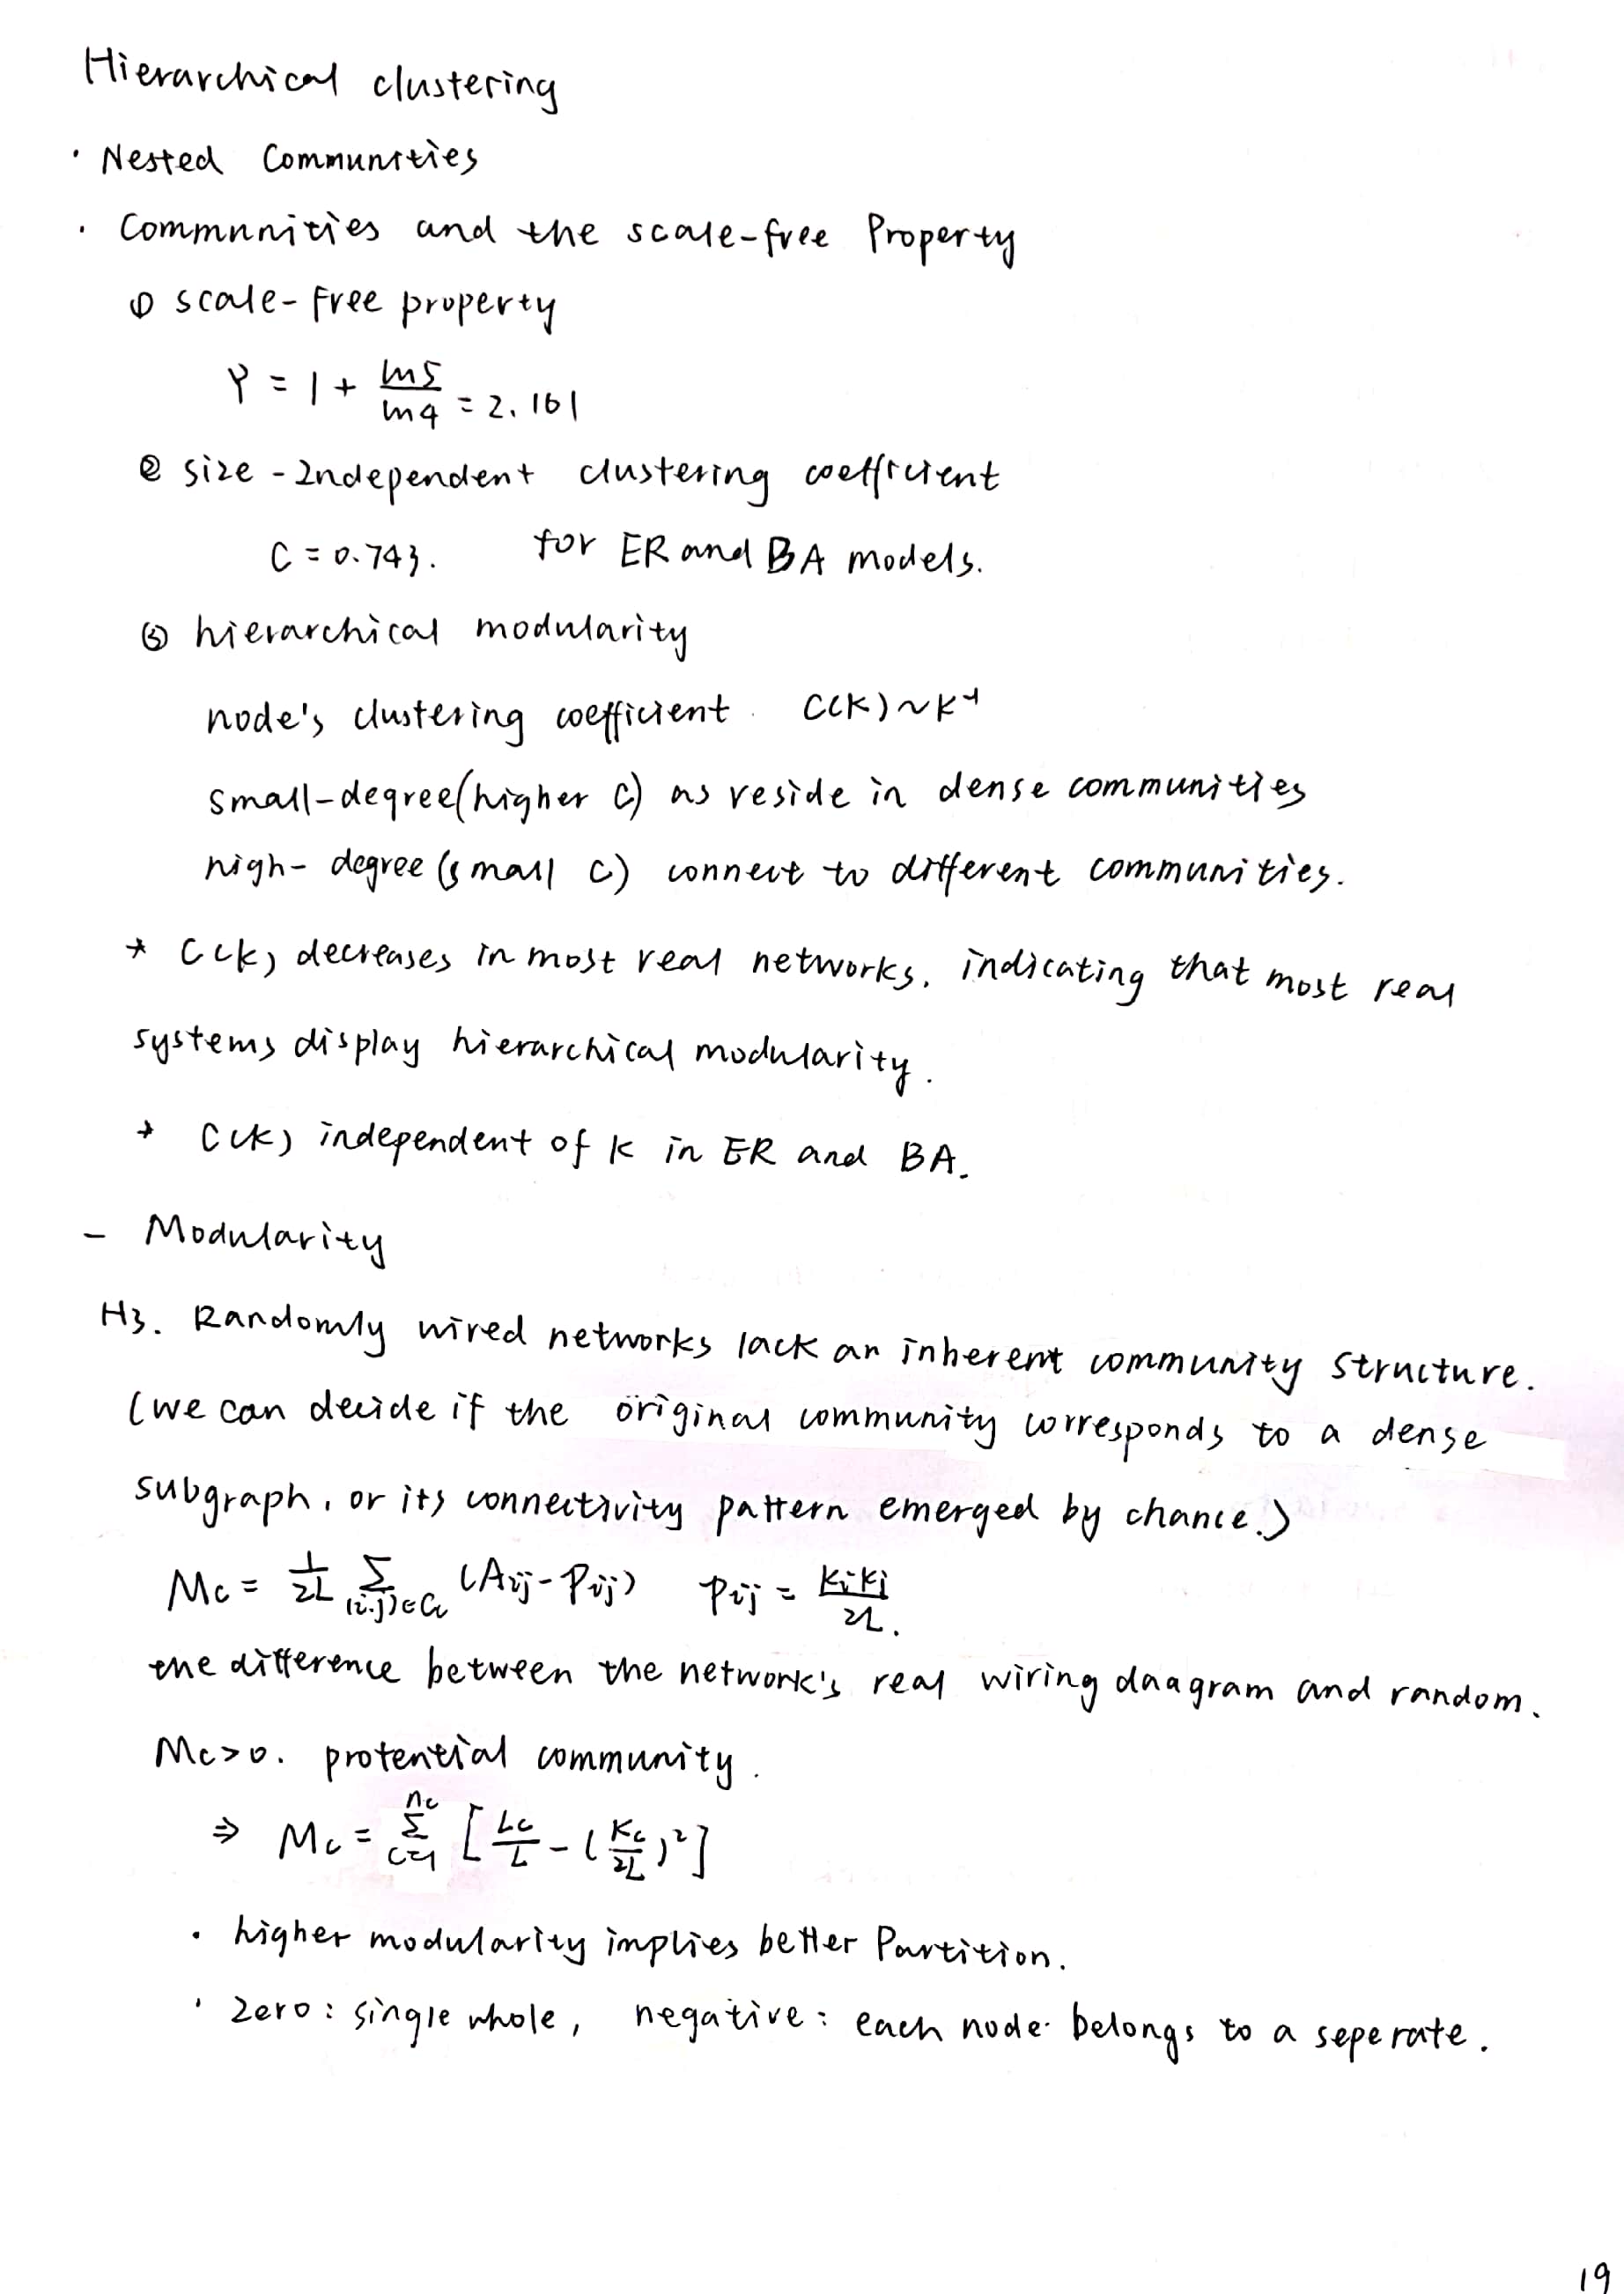 Hierarchical clustering
· Nested Communities
· Communities and the scale-free Property
① scale-free property
γ = 1 + ln5/ln4 = 2.161
② size-Independent clustering coefficient
C = 0.743. for ER and BA models.
③ hierarchical modularity
node's clustering coefficient. C(K)~K⁻¹
small-degree(higher C) as reside in dense communities
high-degree (small C) connect to different communities.
* C(k) decreases in most real networks, indicating that most real
systems display hierarchical modularity.
* C(k) independent of k in ER and BA.
- Modularity
H3. Randomly wired networks lack an inherent community structure.
(we can decide if the original community corresponds to a dense
subgraph, or its connectivity pattern emerged by chance.)
Mc = 1/2L Σ(i,j)∈Cc (Aij - Pij) Pij = kikj/2L.
the difference between the network's real wiring daagram and random.
Mc>0. protential community.
⇒ Mc = Σ_{c=1}^{nc} [Lc/L - (Kc/2L)²]
· higher modularity implies better Partition.
· Zero: single whole, negative: each node belongs to a seperate.
19